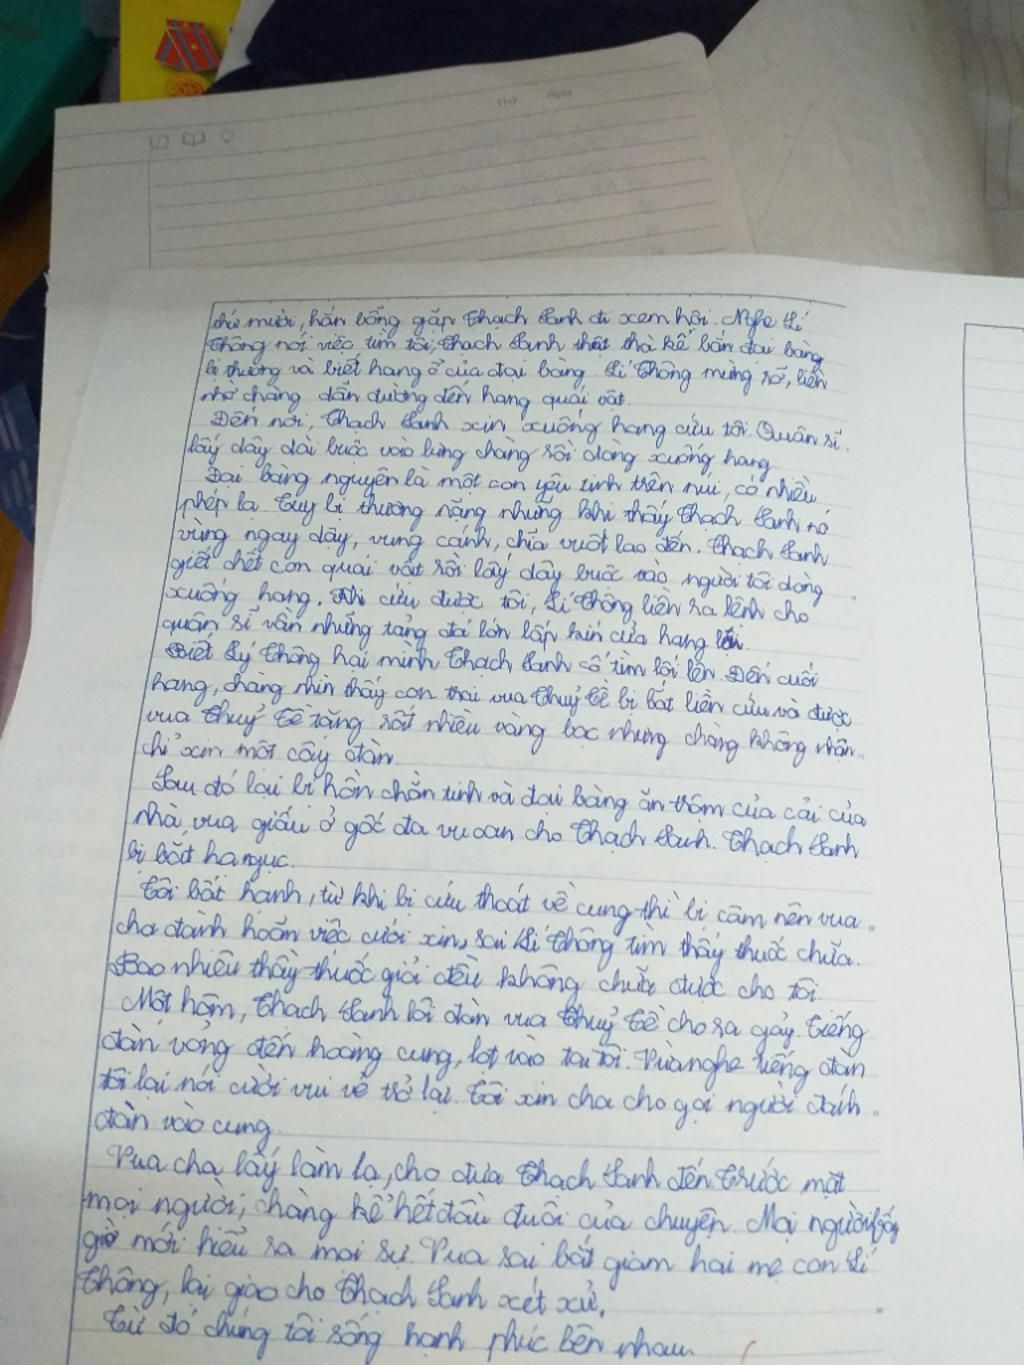 Thứ Ngày
thứ mười, hắn bỗng gặp Thạch Sanh đi xem hội. Nghe Lí
Thông nói việc tìm tôi, Thạch Sanh thật thà kể bắn đại bàng
bị thương và biết hang ổ của đại bàng. Lí Thông mừng rỡ, liền
nhờ chàng dẫn đường đến hang quái vật.
Đến nơi, Thạch Sanh xin xuống hang cứu tôi. Quân sĩ
lấy dây dài buộc vào lưng chàng rồi dòng xuống hang
Đại bàng nguyên là một con yêu tinh trên núi, có nhiều
phép lạ. Tuy bị thương nặng nhưng khi thấy Thạch Sanh nó
vùng ngay dậy, vung cánh, chĩa vuốt lao đến. Thạch Sanh
giết chết con quái vật rồi lấy dây buộc vào người tôi dòng
xuống hang. Khi cứu được tôi, Lí Thông liền ra lệnh cho
quân sĩ vần những tảng đá lớn lấp kín cửa hang lại.
Biết Lý Thông hại mình Thạch Sanh cố tìm lối lên. Đến cuối
hang, chàng nhìn thấy con trai vua Thuỷ Tề bị bắt liền cứu và được
vua Thuỷ Tề tặng rất nhiều vàng bạc nhưng chàng không nhận
chỉ xin một cây đàn.
Sau đó lại bị hồn chằn tinh và đại bàng ăn trộm của cải của
nhà vua giấu ở gốc đa vu oan cho Thạch Sanh. Thạch Sanh
bị bắt hạ ngục.
Tôi bất hạnh, từ khi bị cứu thoát về cung thì bị câm nên vua
cha đành hoãn việc cưới xin, sai Lí Thông tìm thầy thuốc chữa.
Bao nhiêu thầy thuốc giỏi đều không chữa được cho tôi
Một hôm, Thạch Sanh lôi đàn vua Thuỷ Tề cho ra gảy. Tiếng
đàn vẳng đến hoàng cung, lọt vào tai tôi. Vừa nghe tiếng đàn
tôi lại nói cười vui vẻ trở lại. Tôi xin cha cho gọi người đánh
đàn vào cung.
Vua cha lấy làm lạ, cho đưa Thạch Sanh đến. Trước mặt
mọi người, chàng kể hết đầu đuôi của chuyện. Mọi người bấy
giờ mới hiểu ra mọi sự. Vua sai bắt giam hai mẹ con Lí
Thông, lại giao cho Thạch Sanh xét xử.
Từ đó chúng tôi sống hạnh phúc bên nhau.